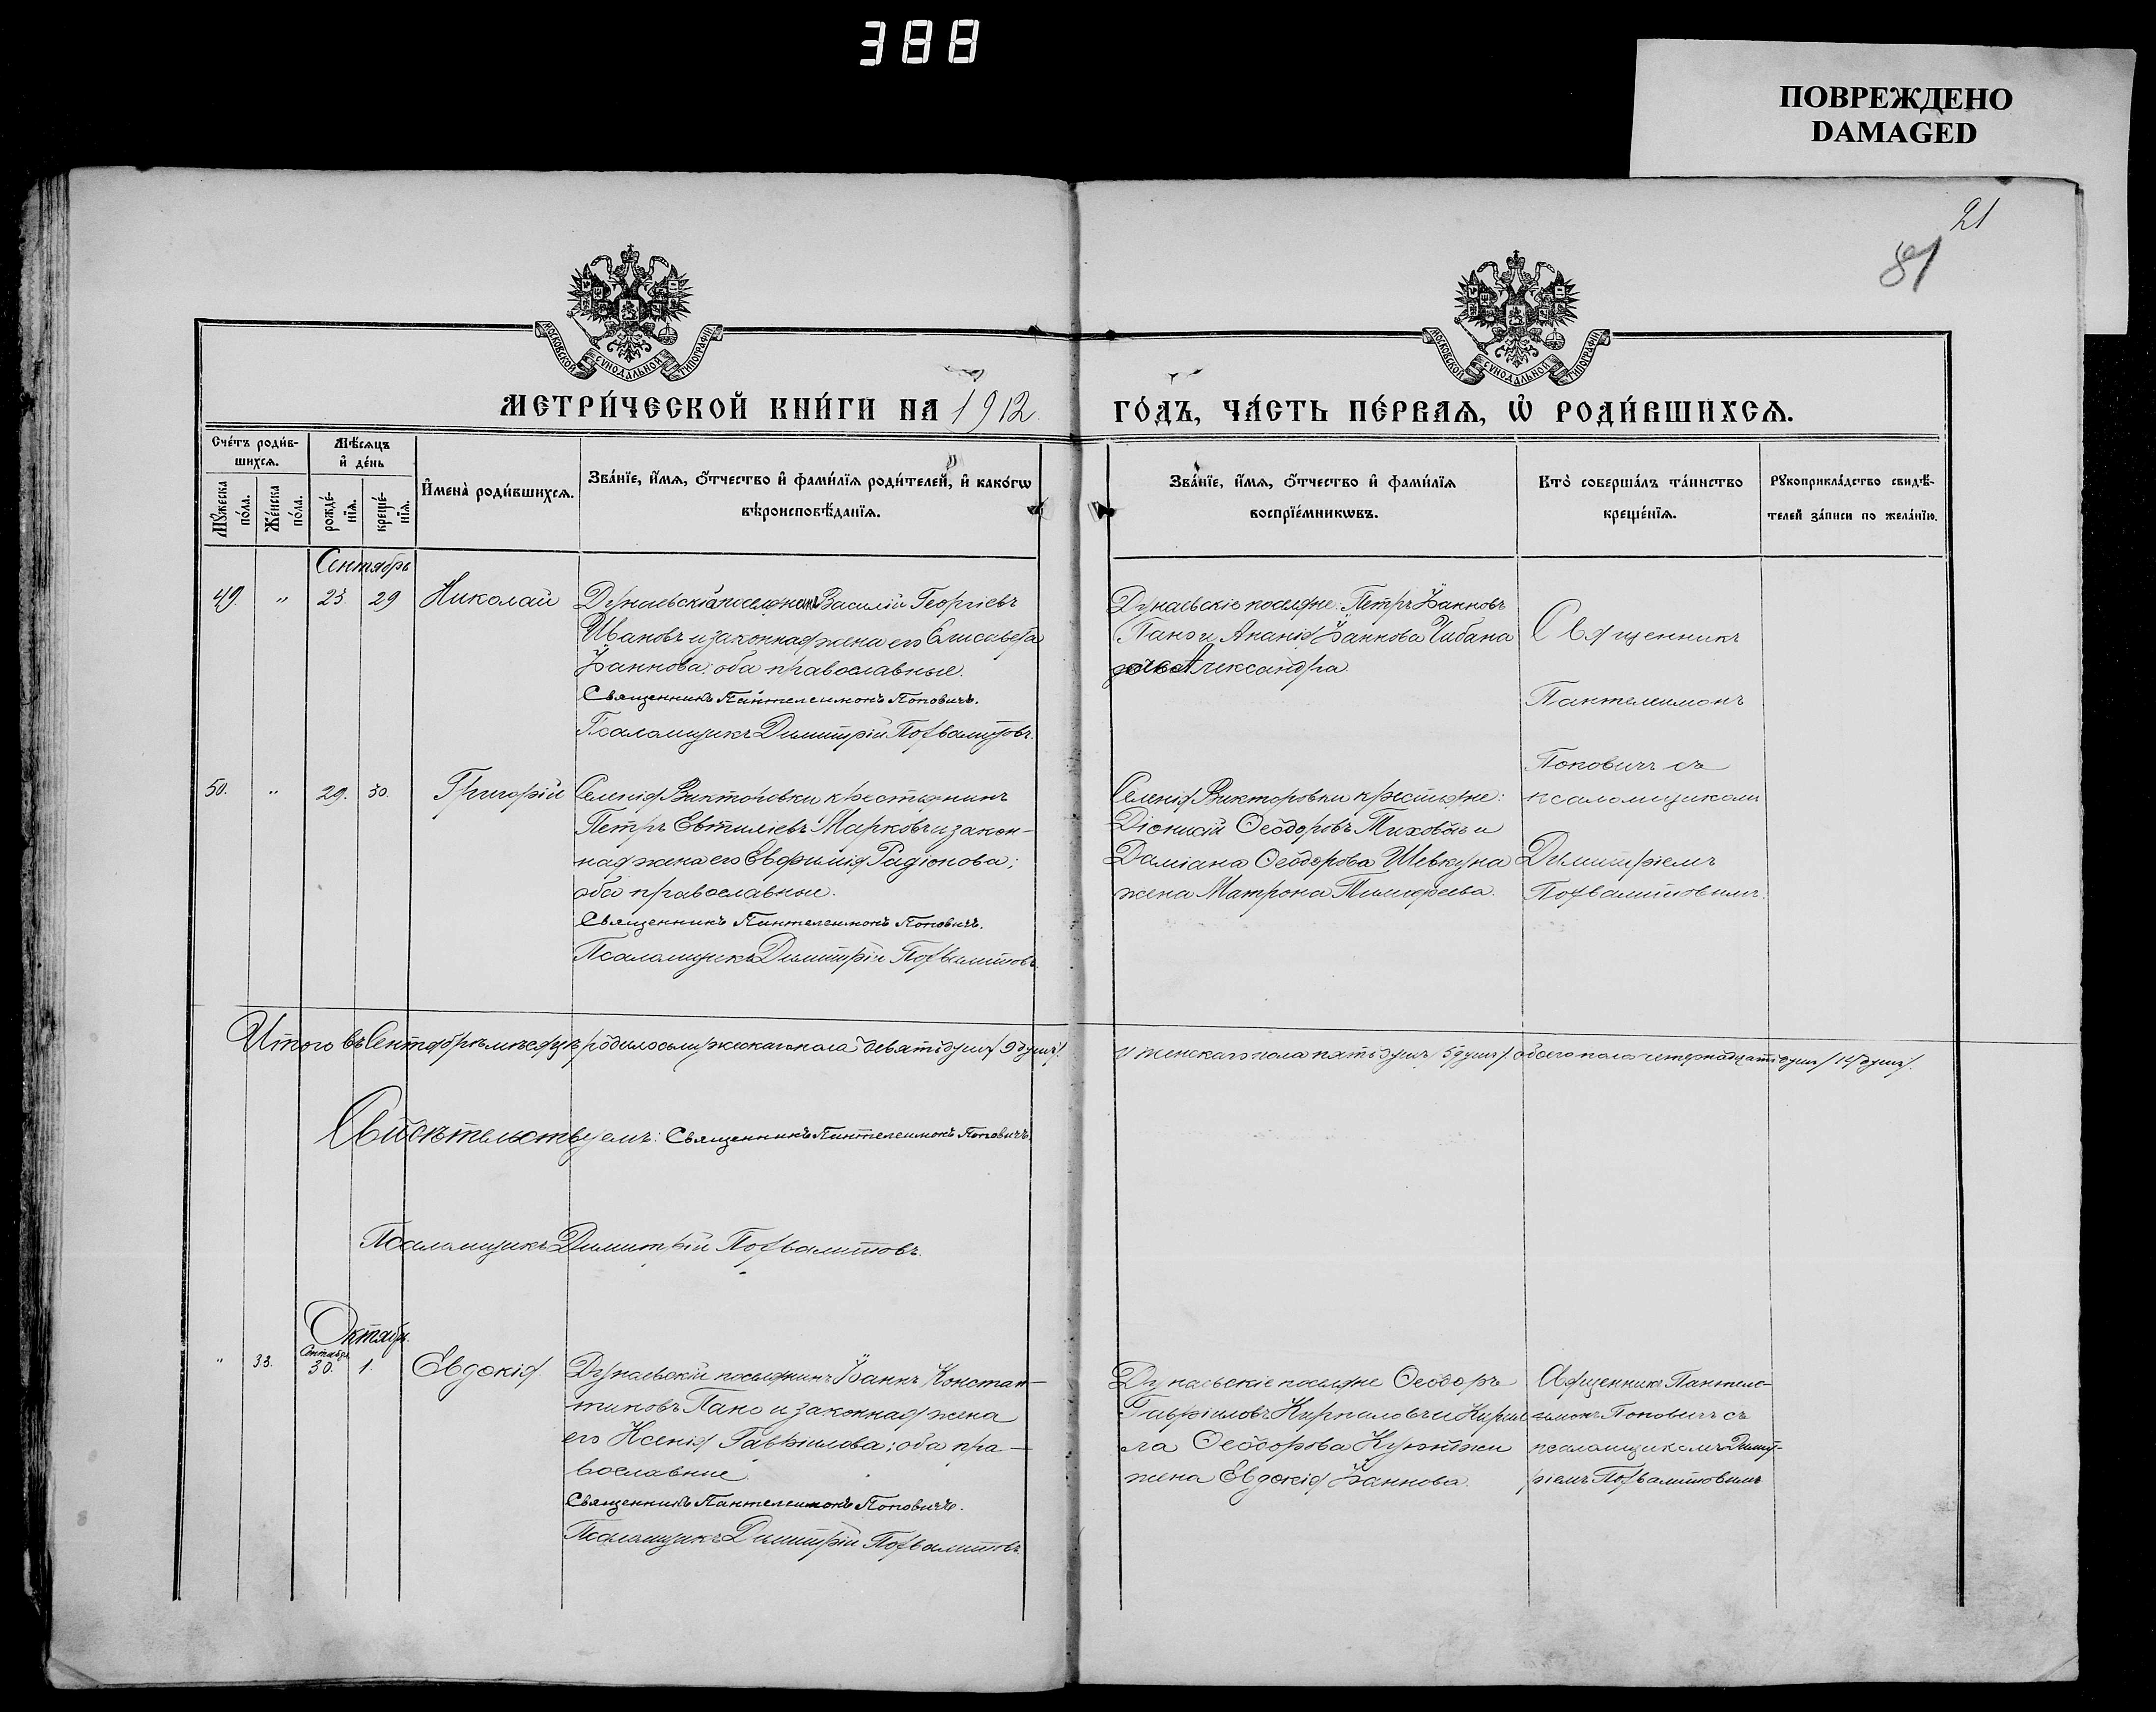 388
ПОВРЕЖДЕНО
DAMAGED
21
81
МОСКОВСКОЙ СУНОДАЛЬНОЙ ТИПОГРАФІИ
МОСКОВСКОЙ СУНОДАЛЬНОЙ ТИПОГРАФІИ
МЕТРИ́ЧЕСКОЙ КНИ́ГИ НА 1912
ГО́ДЪ, ЧА́СТЬ ПЕ́РВАѦ, Ѡ҆ РОДИ́ВШИХСѦ.
Сче́тъ роди́в-
шихсѧ.
Мѣсѧцъ
и҆ де́нь
Мꙋ́жеска по́ла.
Же́нска по́ла.
рожде́-
нїѧ.
креще́-
нїѧ.
И҆мена̀ роди́вшихсѧ.
Зва́нїе, и҆́мѧ, ѻ҆́тчество и҆ фами́лїѧ роди́телей, и҆ како́гѡ
вѣроисповѣ́данїѧ.
Зва́нїе, и҆́мѧ, ѻ҆́тчество и҆ фами́лїѧ
воспрїе́мникѡвъ.
Кто̀ соверша́лъ та́инство
креще́нїѧ.
Рꙋкоприкла́дство свидѣ́-
телей за́писи по жела́нїю.
Сентябрь
49. " 25 29 Николай
Дунаевскій поселянинъ Василій Георгіевъ
Ивановъ и законная жена его Елисавета
Іоаннова: оба православные.
Священникъ Пантелеимонъ Поповичъ.
Псаломщикъ Димитрій
Дунаевскіе поселяне: Петръ Іоанновъ
Пано и Ананія Іоаннова Чибана
дочь Александра.
Священникъ
Пантелеимонъ
Поповичъ съ
псаломщикомъ
Димитріемъ
50. " 29. 30. Григорій
Селенія Викторовки крестьянинъ
Петръ Евтиміевъ Марковъ и закон-
ная жена его Евфимія Радіонова;
оба православные.
Священникъ Пантелеимонъ Поповичъ.
Псаломщикъ Димитрій
Селенія Викторовки крестьяне:
Діонисій Ѳеодоровъ и
Даміана Ѳеодорова Шевкуна
жена Матрона Тимофеева.
Итого въ Сентябрѣ мѣсяцѣ родилось мужескаго пола девять душъ /9 душъ/.
и женскаго пола пять душъ /5 душъ/. обоего пола четырнадцать душъ /14 душъ/.
Свидѣтельствуемъ: Священникъ Пантелеимонъ Поповичъ.
Псаломщикъ Димитрій
Октябрь.
Сентябрь
" 33. 30. 1. Евдокія
Дунаевскій поселянинъ Іоаннъ Констан-
тиновъ Пано и законная жена
его Ксенія Гавріилова; оба пра-
вославные.
Священникъ Пантелеимонъ Поповичъ.
Псаломщикъ Димитрій
Дунаевскіе поселяне Ѳеодоръ
Гавріиловъ и Кирил-
ла Ѳеодорова
жена Евдокія Іоаннова.
Священникъ Пантеле-
имонъ Поповичъ съ
псаломщикомъ Димит-
ріемъ